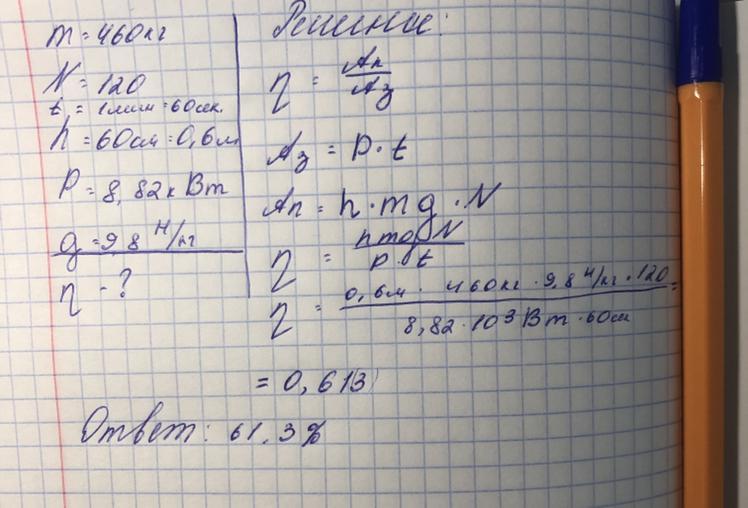 m = 460кг
N = 120
t = 1мин = 60сек.
h = 60см = 0,6м
P = 8,82кВт
g = 9,8 Н/кг
η - ?
Решение:
η = Aп/Aз
Aз = P · t
Aп = h · mg · N
η = hmgN/P · t
η = 0,6м · 460кг · 9,8 Н/кг · 120/8,82 · 10³Вт · 60сек =
= 0,613
Ответ: 61,3%